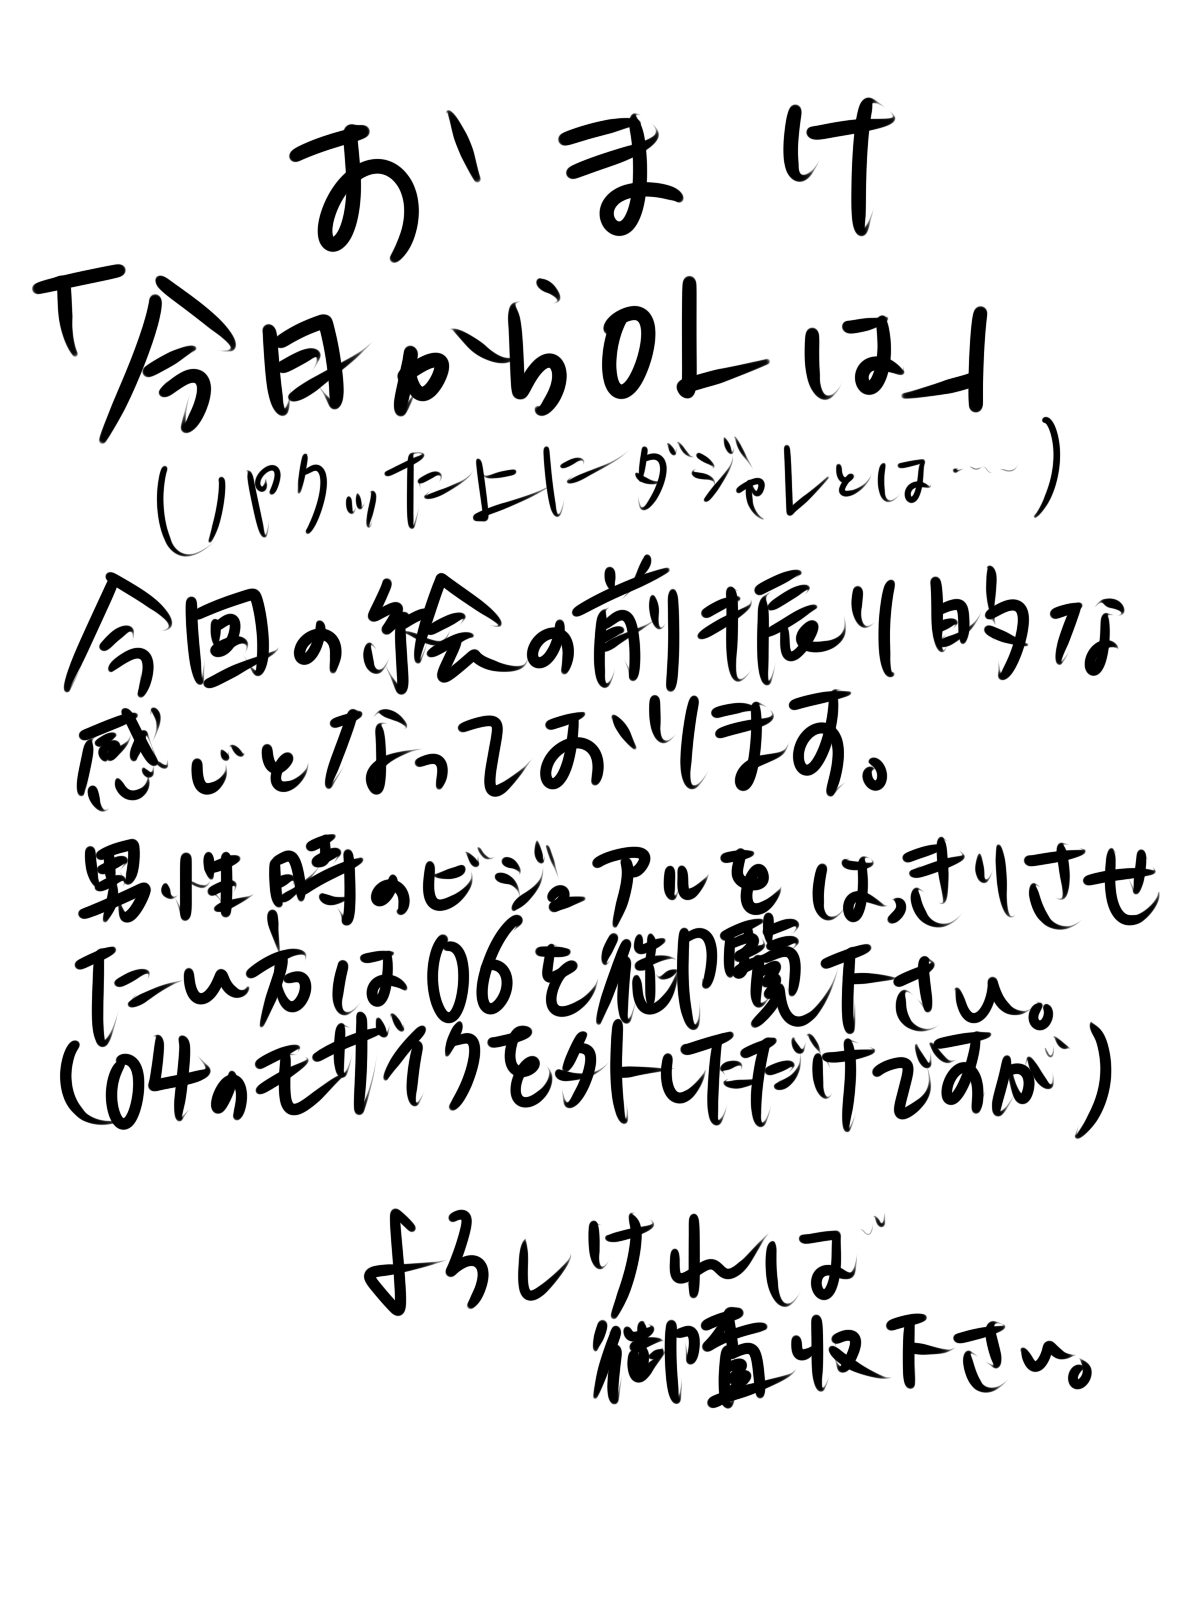 おまけ
「今日からOLは」
(パクッた上にダジャレとは……)
今回の絵の前振り的な
感じとなっております。
男性時のビジュアルをはっきりさせ
たい方は06を御覧下さい。
(04のモザイクを外しただけですが)
よろしければ
御査収下さい。